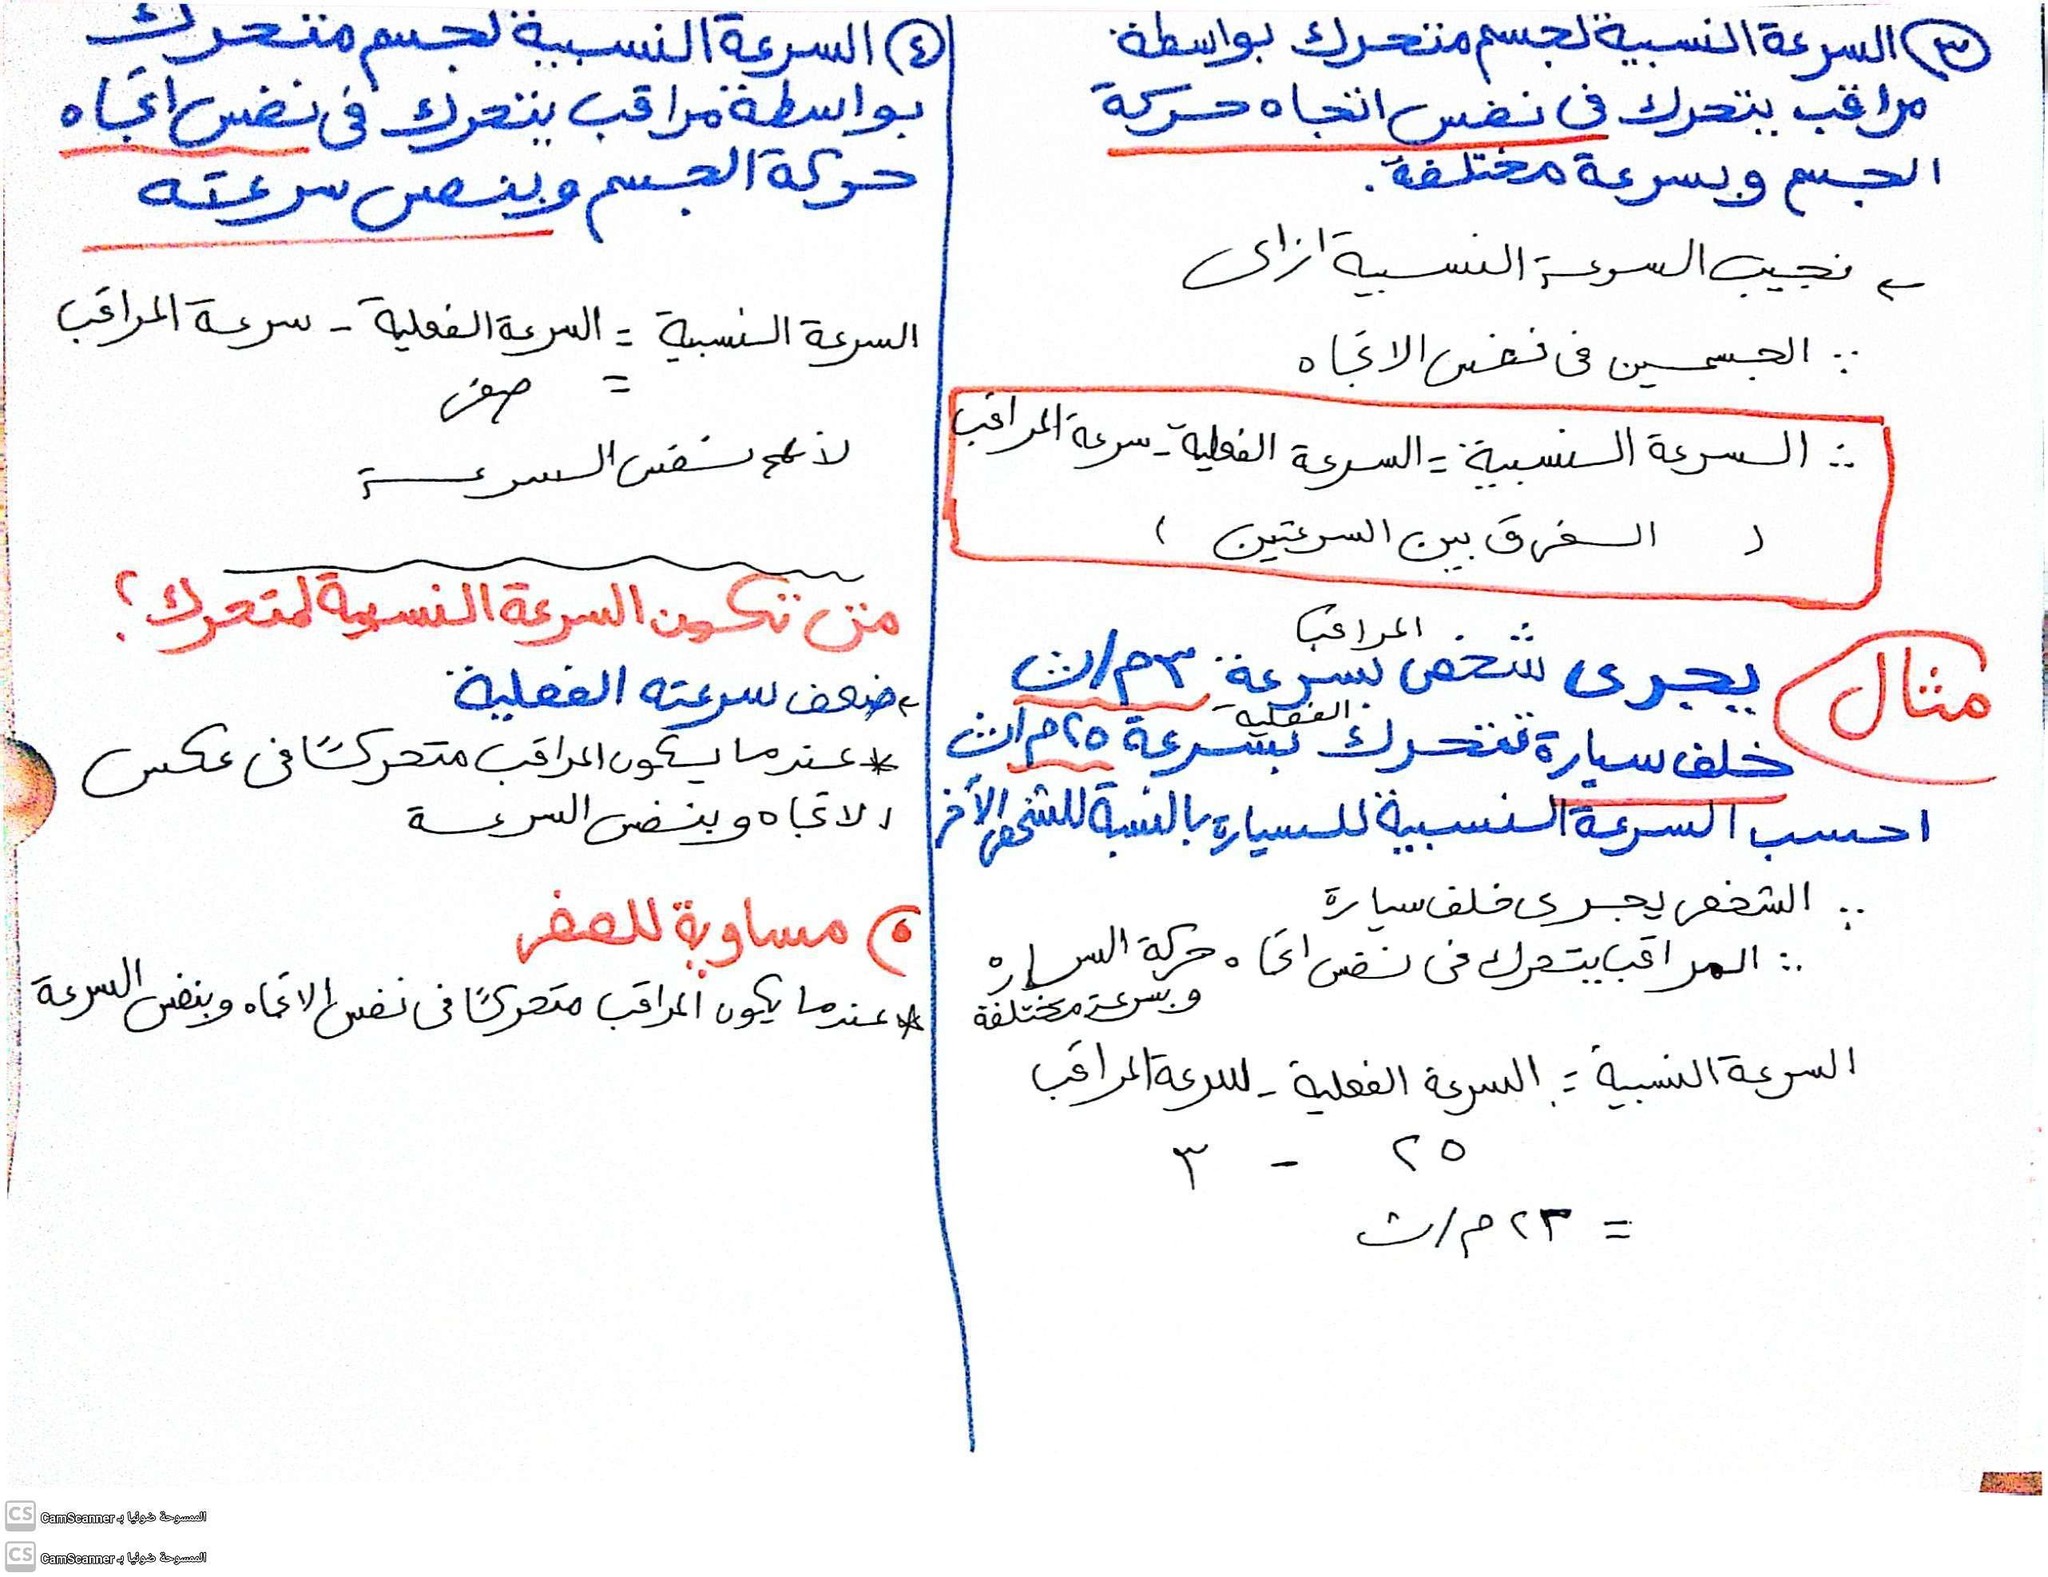 ٣ السرعة النسبية لجسم متحرك بواسطة
مراقب يتحرك فى نفس اتجاه حركة
الجسم وبسرعة مختلفة.
← نجيب السرعة النسبية ازاى
∵ الجسمين فى نفس الاتجاه
∴ السرعة النسبية = السرعة الفعلية - سرعة المراقب
( الفرق بين السرعتين )
مثال
المراقب
يجرى شخص بسرعة ٣م/ث
الفعلية
خلف سيارة تتحرك بسرعة ٢٥م/ث
احسب السرعة النسبية للسيارة بالنسبة للشخص الآخر
∵ الشخص يجرى خلف سيارة
∴ المراقب يتحرك فى نفس اتجاه حركة السياره
وبسرعة مختلفة
السرعة النسبية = السرعة الفعلية - سرعة المراقب
٢٥ - ٣
= ٢٣ م/ث
٤ السرعة النسبية لجسم متحرك
بواسطة مراقب يتحرك فى نفس اتجاه
حركة الجسم وبنفس سرعته
السرعة النسبية = السرعة الفعلية - سرعة المراقب
= صفر
لأنهم نفس السرعة
متى تكون السرعة النسبية لمتحرك؟
← ضعف سرعته الفعلية
* عندما يكون المراقب متحركًا فى عكس
الاتجاه وبنفس السرعة
مساوية للصفر
* عندما يكون المراقب متحركًا فى نفس الاتجاه وبنفس السرعة
CS الممسوحة ضوئيا بـ CamScanner
CS الممسوحة ضوئيا بـ CamScanner